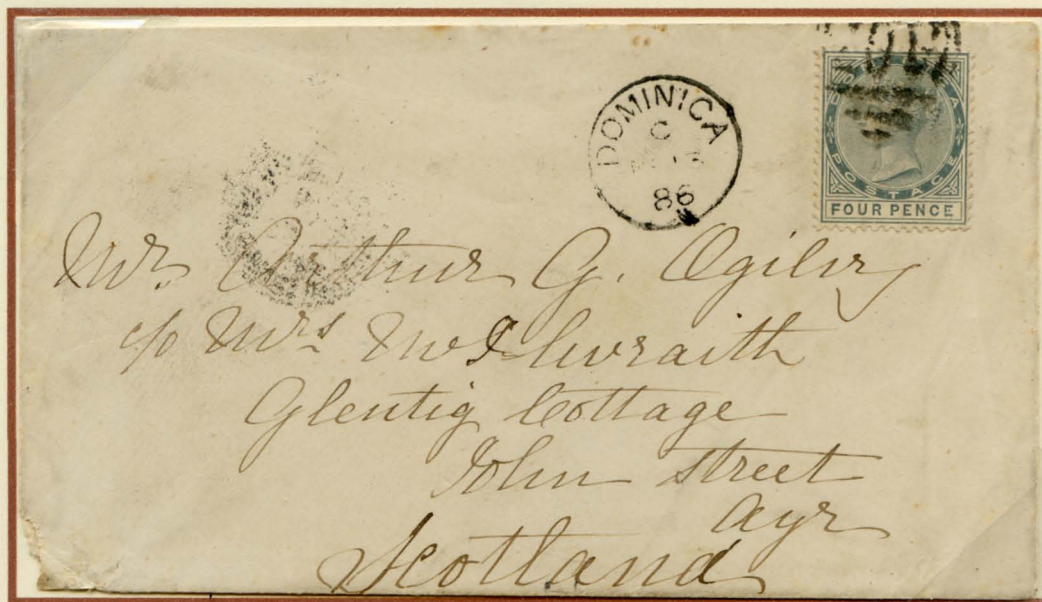 DOMINICA
C
86
DOMINICA
POSTAGE
FOUR PENCE
Mr. Arthur G. Ogilvy
c/o Mrs McIlwraith
Glentig Cottage
John Street
Ayr
Scotland